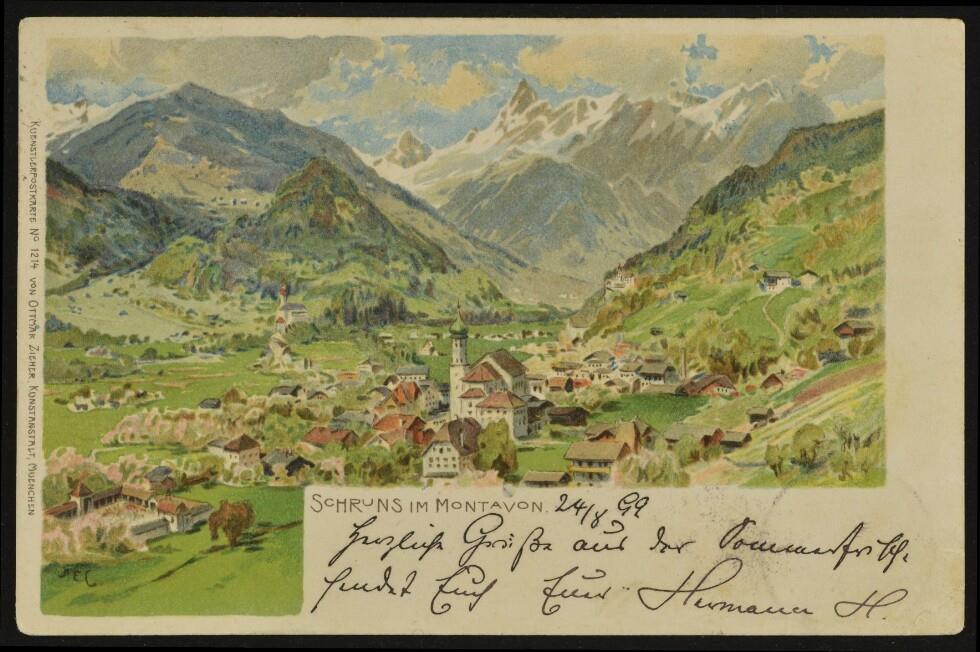 KUENSTLERPOSTKARTE No 1214 VON OTTMAR ZIEHER, KUNSTANSTALT, MUENCHEN
SCHRUNS IM MONTAVON. 24/8 99
Herzliche Grüße aus der Sommerfrische
sendet Euch Euer Hermann H.